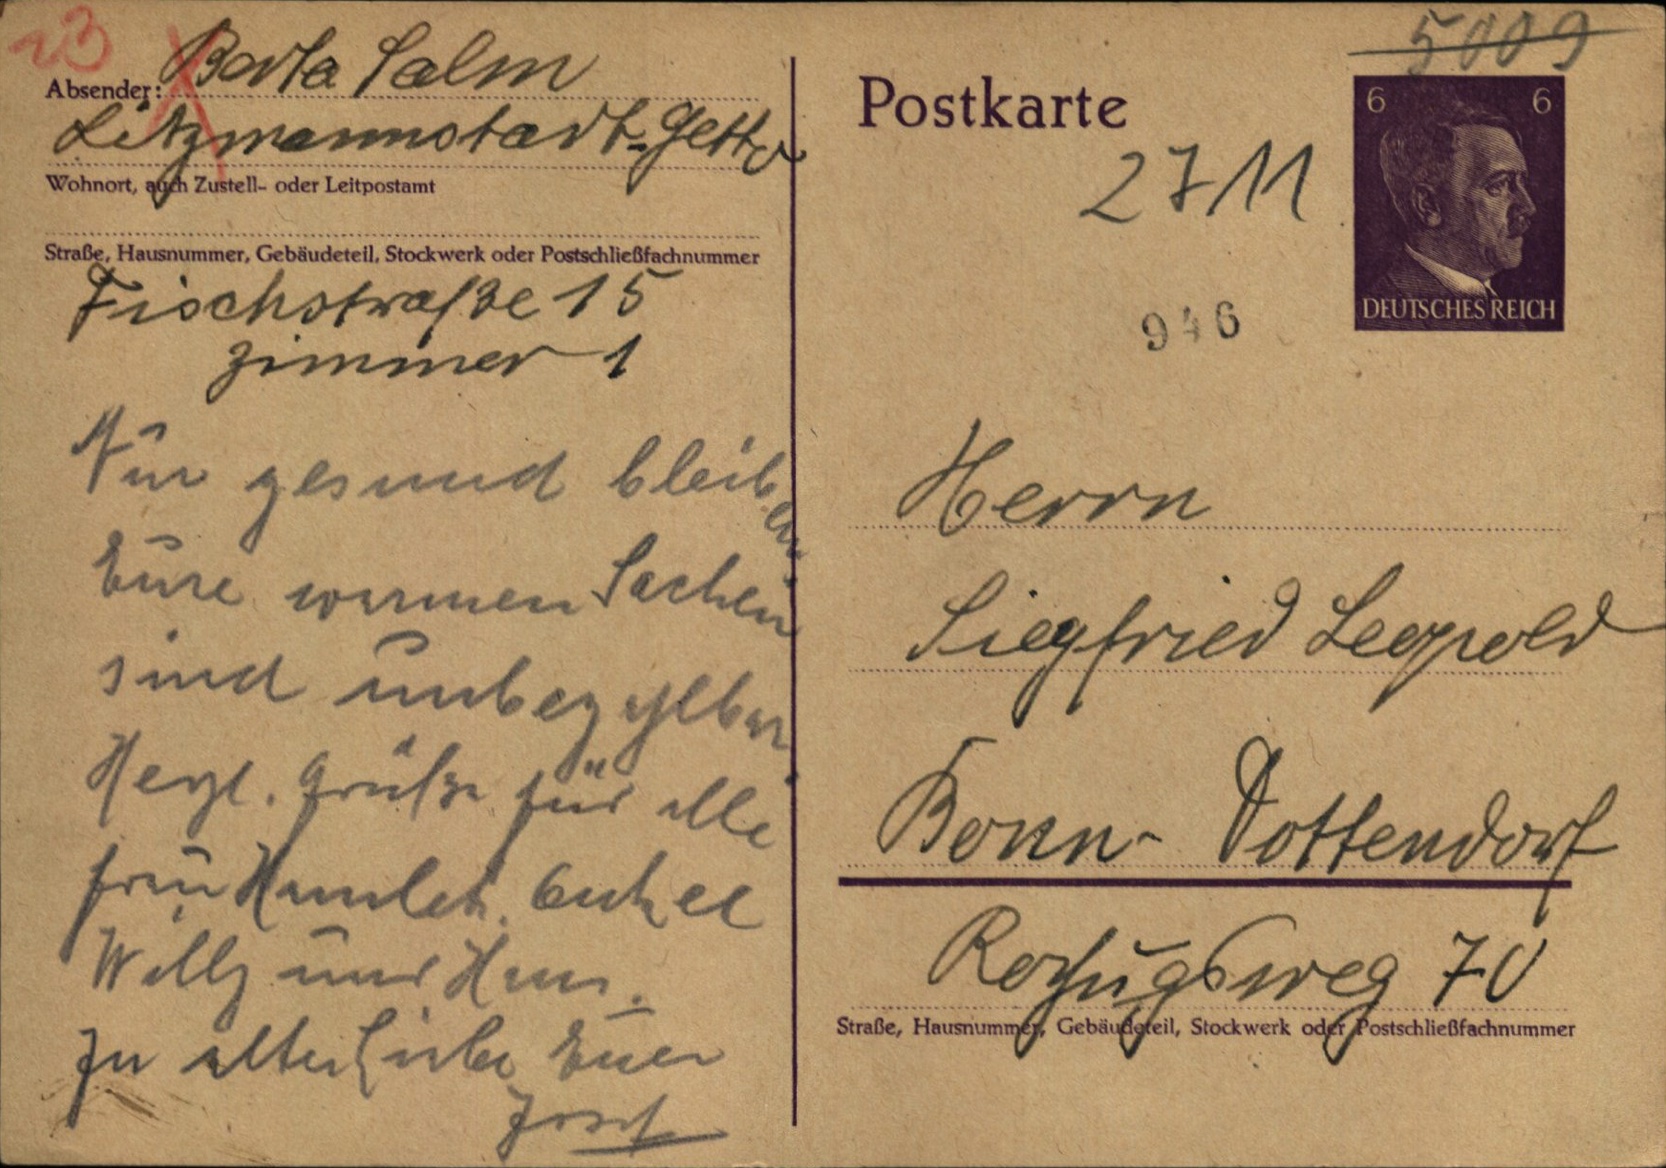 23
Absender: Berta Salm
Litzmannstadt-Getto
Wohnort, auch Zustell- oder Leitpostamt
Straße, Hausnummer, Gebäudeteil, Stockwerk oder Postschließfachnummer
Fischstraße 15
Zimmer 1
Nur gesund bleiben
Eure warmen Sachen
sind unbezahlbar.
Herzl. Grüße für alle
Frau Onkel
Willy und
In alter Liebe Euer
Josef
Postkarte
5009
6 6
DEUTSCHES REICH
2711
946
Herrn
Siegfried Leopold
Bonn-Dottendorf
70
Straße, Hausnummer, Gebäudeteil, Stockwerk oder Postschließfachnummer